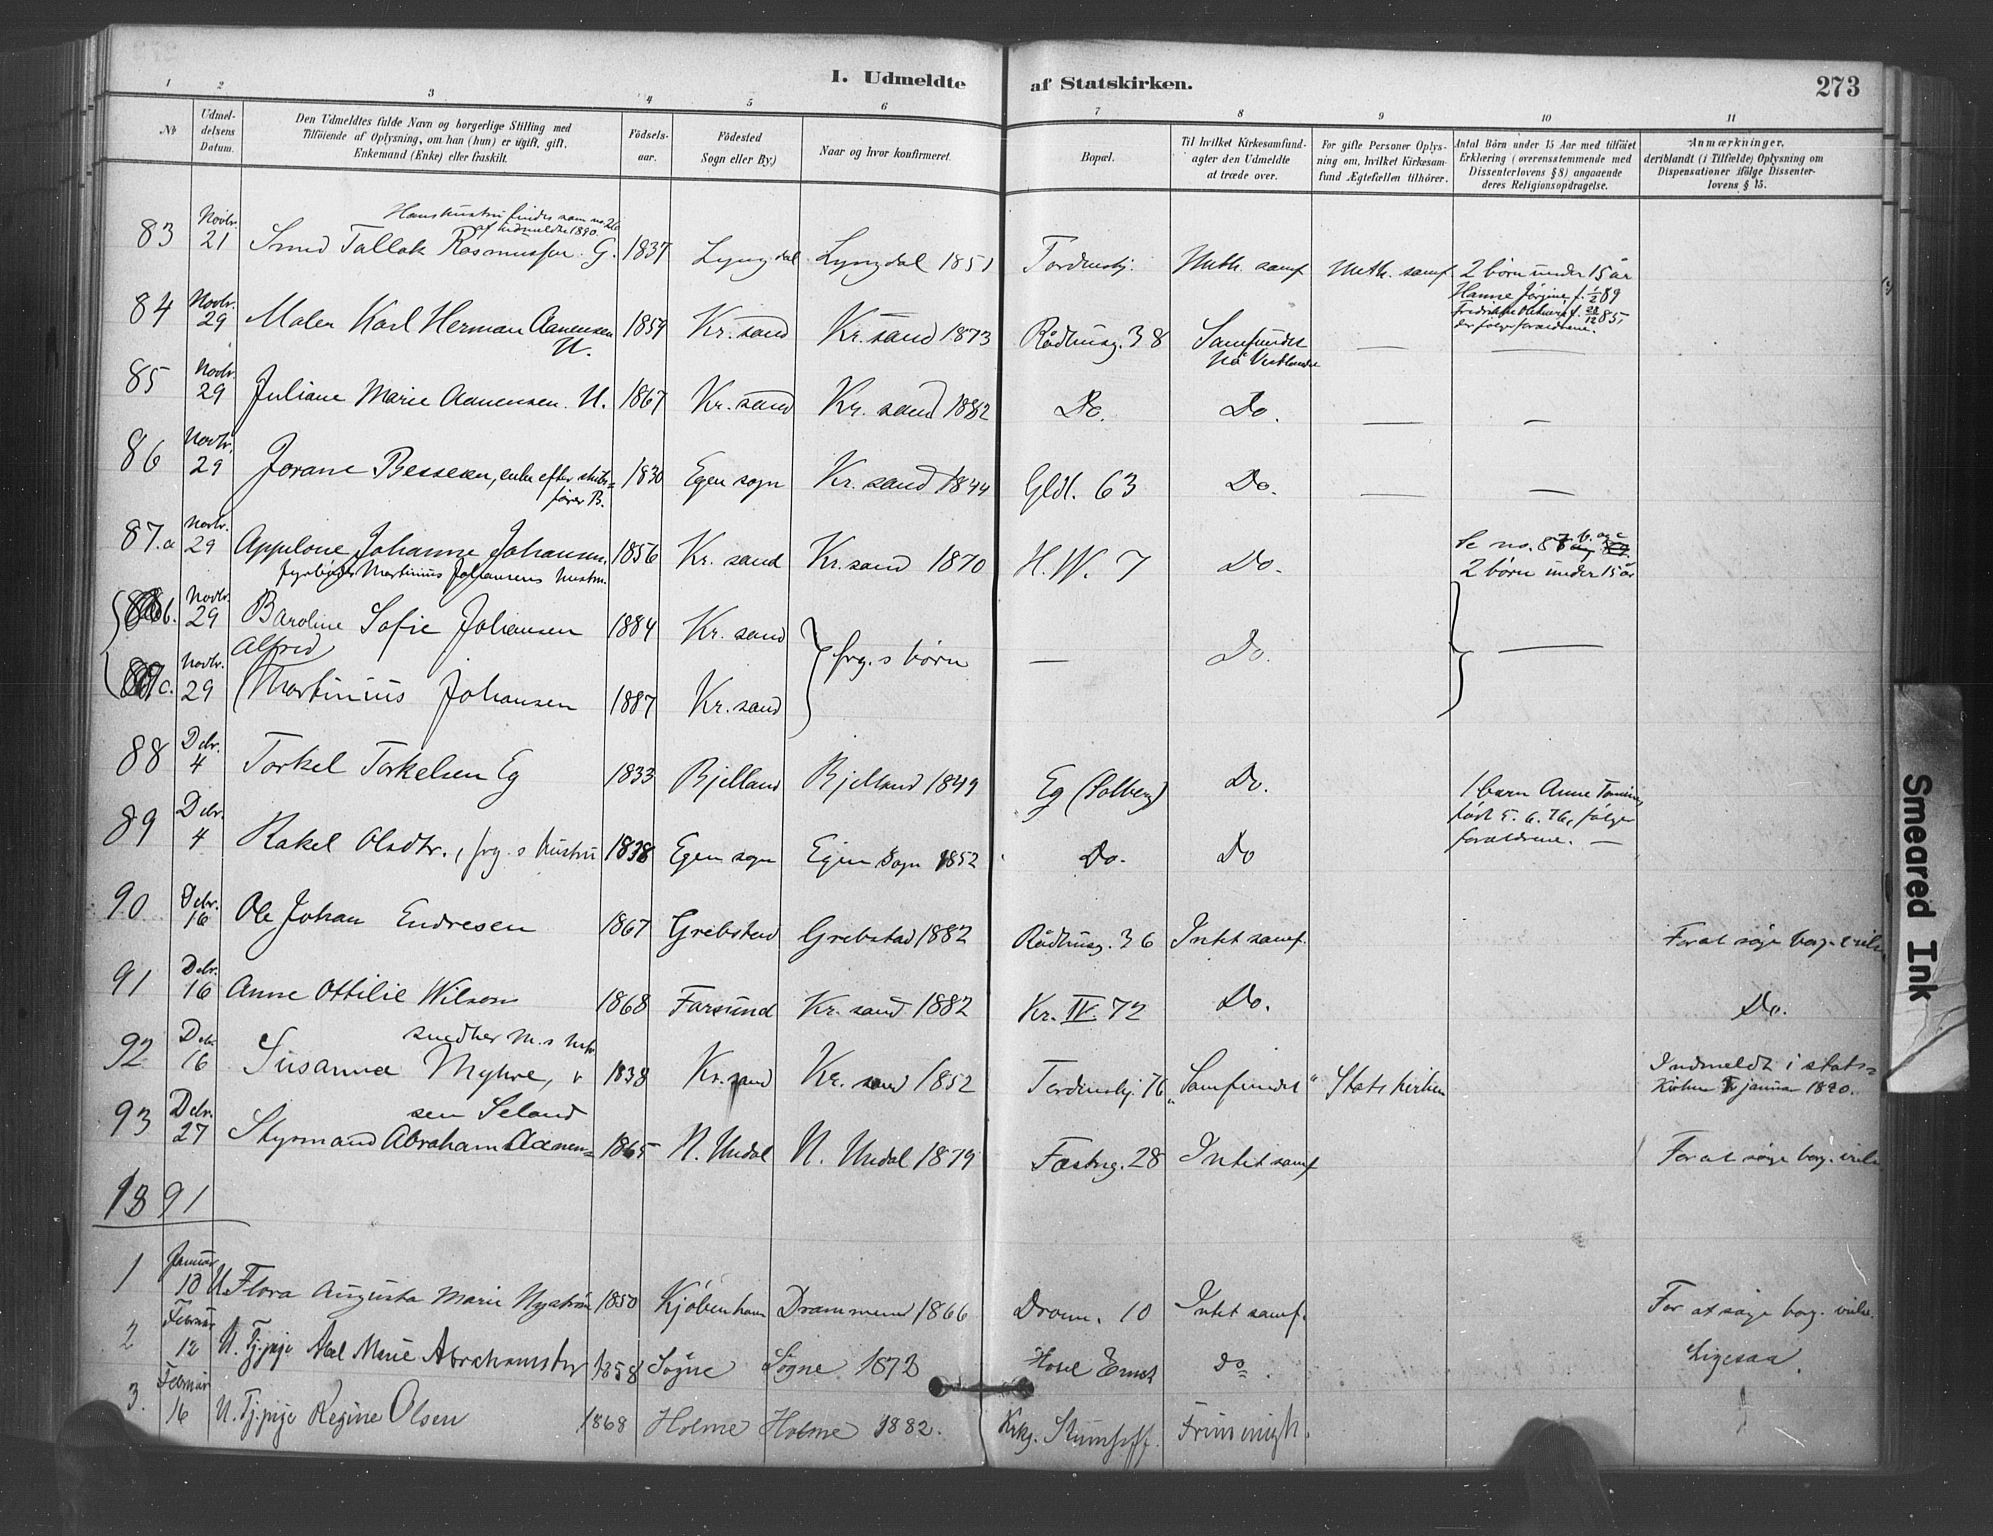 I. Udmeldte af Statskirken. 273
1 2 3 4 5 6 7 8 9 10 11
No
Udmel-
delsens
Datum.
Den Udmeldtes fulde Navn og borgerlige Stilling med
Tilföiende af Oplysning, om han (hun) er ugift, gift,
Enkemand (Enke) eller fraskilt.
Födsels-
aar.
Födested
Sogn eller By.)
Naar og hvor konfirmeret.
Bopæl.
Til hvilket Kirkesamfund
agter den Udmeldte
at træde over.
For gifte Personer Oplys-
ning om, hvilket Kirkesam-
fund Ægtefællen tilhörer.
Antal Börn under 15 Aar med tilföiet
Erklæring (overensstemmende med
Dissenterlovens § 8) angaaende
deres Religionsopdragelse.
Anmærkninger,
deriblandt (i Tilfælde) Oplysning om
Dispensationer ifölge Dissenter-
lovens § 15.
Hans hustru findes som no. 26
af udmeldte 1890.
83 Novbr. 21 Smed Tallak Rasmussen. G. 1837 Lyngdal Lyngdal 1851 Tordensbj. Meth. samf Meth. samf 2 börn under 15 år
Hanne Jörgine f. 1/2 89
f. 85,
84 Novbr. 29 Maler Karl Herman Aanensen U. 1859 Kr. sand Kr. sand 1873 Rådhusg. 38 Samfundet på Vestlandet — —
85 Novbr. 29 Juliane Marie Aanensen. U. 1867 Kr. sand Kr. sand 1882 Do. Do. — —
86 Novbr. 29 Jorane Bessesen, enke efter skibs=
förer B. 1830 Egen sogn Kr. sand 1844 Gldl. 63 Do. — —
87.a Novbr. 29 Appelone Johanne Johansen, 1856 Kr. sand Kr. sand 1870 H. W. 7 Do. Se no. 87 b. og c
Martinius Johansens hustru. 2 börn under 15 år
b. Novbr. 29 Baroline Sofie Johansen 1884 Kr. sand frg.s börn — Do. —
Alfred
c. Novbr. 29 Martinius Johansen 1887 Kr. sand
88 Debr. 4 Torkel Torkelsen Eg 1833 Bjelland Bjelland 1849 Eg (Solberg) Do. 1 barn Anne
född 5. 6. 76, fölger
forældrene. —
89 Debr. 4 Rakel Olsdtr., frg.s hustru 1838 Egen sogn Egen sogn 1852 Do. Do
90 Debr. 16 Ole Johan Endresen 1867 Grebstad Grebstad 1882 Rådhusg. 36 Intet samf. For at söge borg. vielse
91 Debr. 16 Anne Ottilie Wilson 1868 Farsund Kr. sand 1882 Kr. IV. 72 Do. Do.
92 Debr. 16 Susanna Myhre, 1838 Kr. sand Kr. sand 1852 Tordensbj. 76 "Samfundet" Statskirken Indmeldt i stats=
kirken januar 1890.
sen Seland
93 Debr. 27 Styrmand Abraham Aanen= 1865 N. Undal N. Undal 1879 Fæstng. 28 Intet samf For at söge borg. vielse
1891
1 Januar 10 U. Flora Augusta Marie Nyström 1850 Kjöbenhavn Drammen 1866 Dronn. 10 Intet samf. For at söge borg. vielse.
2 Februar 12 U. Tj.pige Abel Marie Abrahamsdtr 1858 Sögne Sögne 1873 Hotel Ernst do Ligesaa.
3. Februar 16 U. Tj.pige Regine Olsen 1868 Holme Holme 1882. Frimenigh.
Smeared Ink